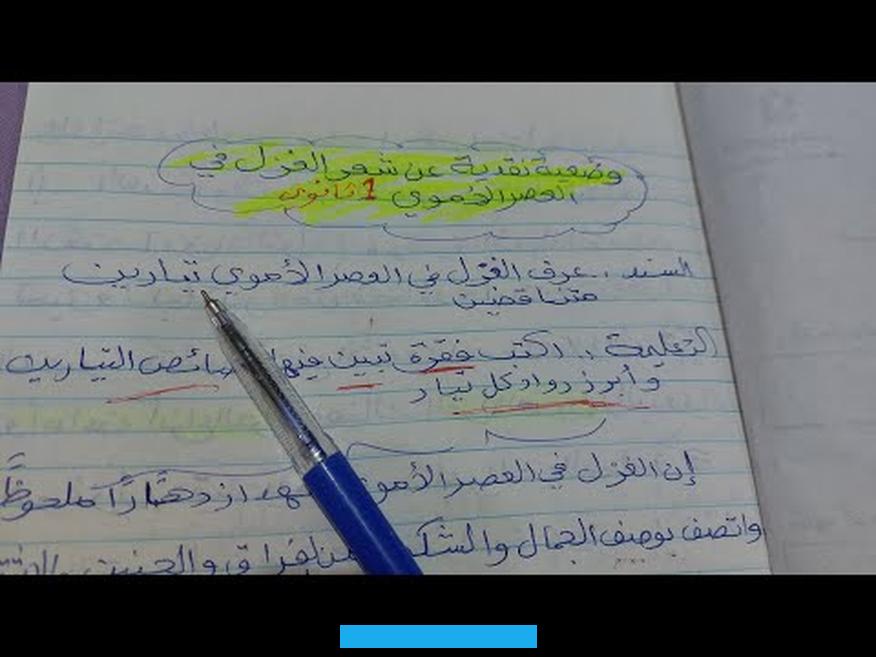 وضعية نقدية عن شعر الغزل في
العصر الأموي 1 ثانوي
السند: عرف الغزل في العصر الأموي تيارين
متناقضين
التعليمة: اكتب فقرة تبين فيها التيارين
وأبرز رواد كل تيار
إن الغزل في العصر الأموي ازدهارًا ملحوظًا
واتصف بوصف الجمال والشكوى الفراق والحنين